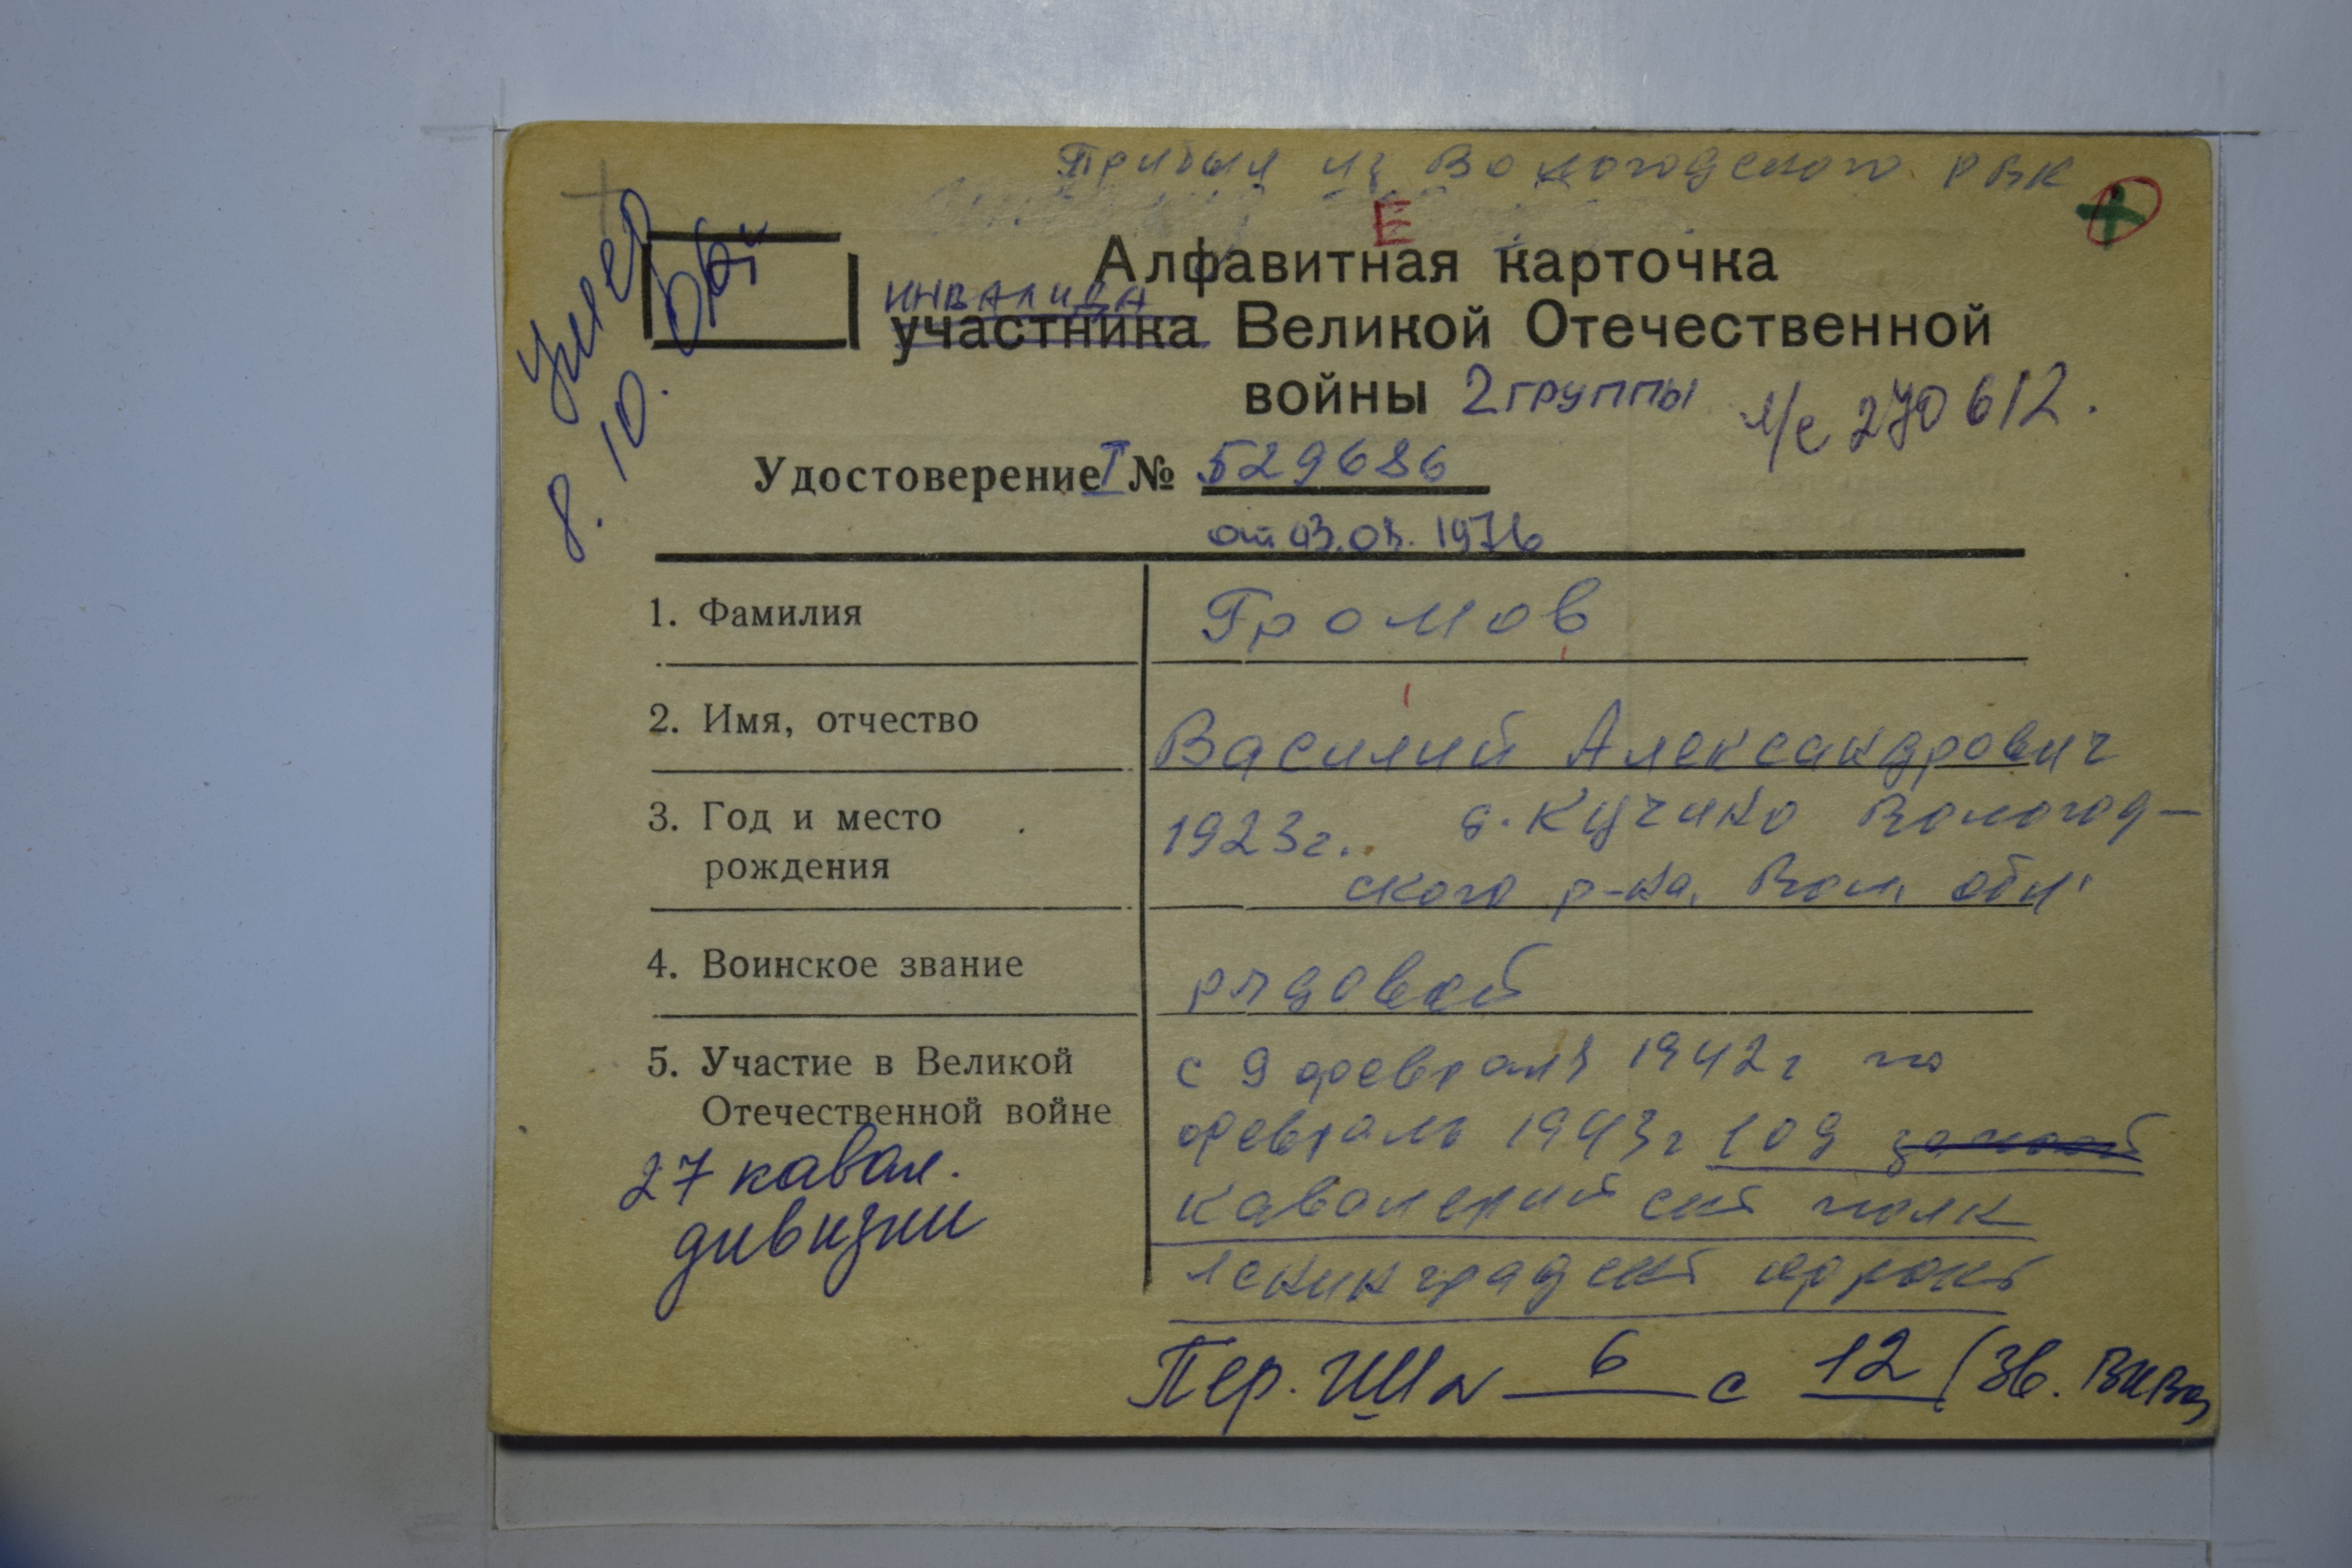 Прибыл из Вологодского РВК
Е
умер
8. 10. 86г
Алфавитная карточка
инвалида
участника Великой Отечественной
войны 2 группы л/с 270612.
Удостоверение I № 529686
от 1976
1. Фамилия Громов
2. Имя, отчество Василий Александрович
3. Год и место 1923г. д. Кучино Вологод-
рождения ского р-на, Вол. обл.
4. Воинское звание рядовой
5. Участие в Великой с 9 февраля 1942г по
Отечественной войне февраль 1943г 109
27 кавал. кавалерийский полк
дивизии Ленинградский фронт
Пер. № 6 с 12 (Зв.